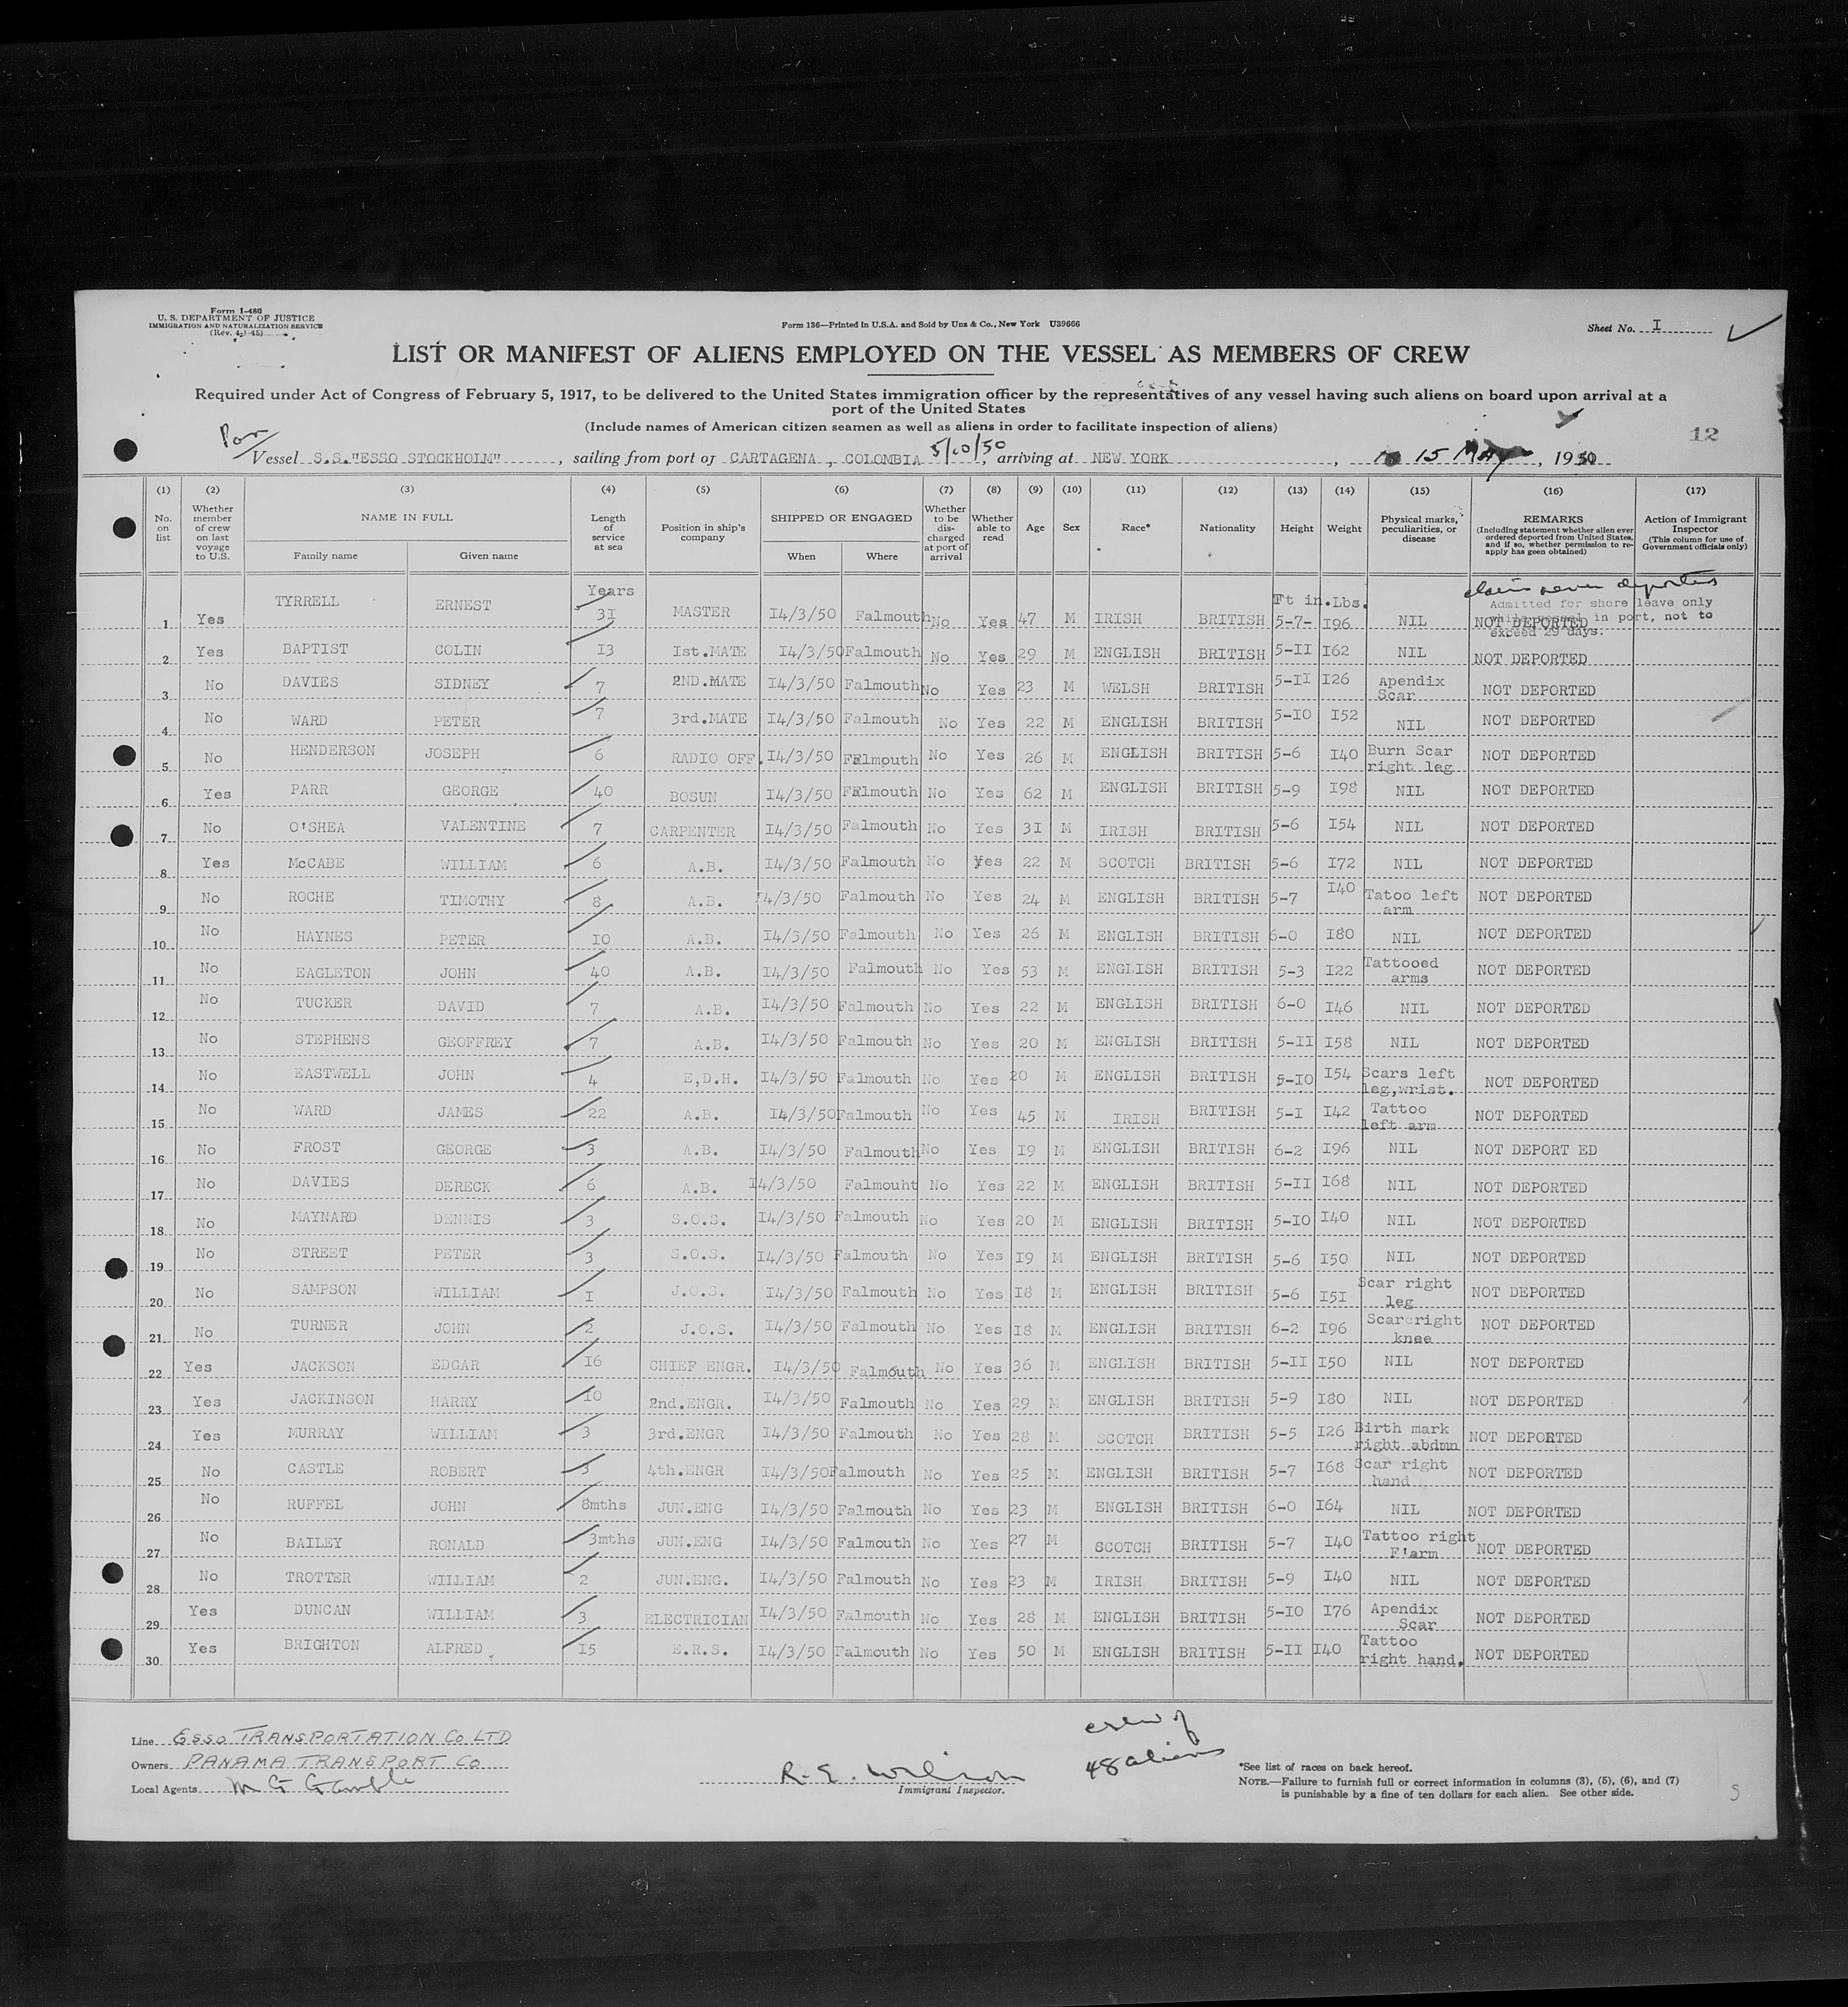 Form I-480
U. S. DEPARTMENT OF JUSTICE
IMMIGRATION AND NATURALIZATION SERVICE
(Rev. 4-1-45)
Form 136—Printed in U.S.A. and Sold by Unz & Co., New York U39666
Sheet No. I
LIST OR MANIFEST OF ALIENS EMPLOYED ON THE VESSEL AS MEMBERS OF CREW
Required under Act of Congress of February 5, 1917, to be delivered to the United States immigration officer by the representatives of any vessel having such aliens on board upon arrival at a
port of the United States
(Include names of American citizen seamen as well as aliens in order to facilitate inspection of aliens)
12
Vessel S.S."ESSO STOCKHOLM", sailing from port of CARTAGENA, COLOMBIA 5/10/50, arriving at NEW YORK, 15 MAY, 1950
(1) (2) (3) (4) (5) (6) (7) (8) (9) (10) (11) (12) (13) (14) (15) (16) (17)
No. on list Whether member of crew on last voyage to U.S. NAME IN FULL Family name Given name Length of service at sea Position in ship's company SHIPPED OR ENGAGED When Where Whether to be discharged at port of arrival Whether able to read Age Sex Race* Nationality Height Weight Physical marks, peculiarities, or disease REMARKS (Including statement whether alien ever ordered deported from United States, and if so, whether permission to reapply has geen obtained) Action of Immigrant Inspector (This column for use of Government officials only)
Years Ft in. Lbs. claims never deported
Admitted for shore leave only
in port, not to
exceed 29 days.
1 Yes TYRRELL ERNEST 31 MASTER I4/3/50 Falmouth No Yes 47 M IRISH BRITISH 5-7- I96 NIL NOT DEPORTED
2 Yes BAPTIST COLIN I3 Ist.MATE I4/3/50 Falmouth No Yes 29 M ENGLISH BRITISH 5-II I62 NIL NOT DEPORTED
3 No DAVIES SIDNEY 7 2ND.MATE I4/3/50 Falmouth No Yes 23 M WELSH BRITISH 5-II I26 Apendix Scar NOT DEPORTED
4 No WARD PETER 7 3rd.MATE I4/3/50 Falmouth No Yes 22 M ENGLISH BRITISH 5-I0 I52 NIL NOT DEPORTED
5 No HENDERSON JOSEPH 6 RADIO OFF. I4/3/50 Falmouth No Yes 26 M ENGLISH BRITISH 5-6 I40 Burn Scar right leg NOT DEPORTED
6 Yes PARR GEORGE 40 BOSUN I4/3/50 Falmouth No Yes 62 M ENGLISH BRITISH 5-9 I98 NIL NOT DEPORTED
7 No O'SHEA VALENTINE 7 CARPENTER I4/3/50 Falmouth No Yes 3I M IRISH BRITISH 5-6 I54 NIL NOT DEPORTED
8 Yes McCABE WILLIAM 6 A.B. I4/3/50 Falmouth No Yes 22 M SCOTCH BRITISH 5-6 I72 NIL NOT DEPORTED
9 No ROCHE TIMOTHY 8 A.B. I4/3/50 Falmouth No Yes 24 M ENGLISH BRITISH 5-7 I40 Tatoo left arm NOT DEPORTED
10 No HAYNES PETER I0 A.B. I4/3/50 Falmouth No Yes 26 M ENGLISH BRITISH 6-0 I80 NIL NOT DEPORTED
11 No EAGLETON JOHN 40 A.B. I4/3/50 Falmouth No Yes 53 M ENGLISH BRITISH 5-3 I22 Tattooed arms NOT DEPORTED
12 No TUCKER DAVID 7 A.B. I4/3/50 Falmouth No Yes 22 M ENGLISH BRITISH 6-0 I46 NIL NOT DEPORTED
13 No STEPHENS GEOFFREY 7 A.B. I4/3/50 Falmouth No Yes 20 M ENGLISH BRITISH 5-II I58 NIL NOT DEPORTED
14 No EASTWELL JOHN 4 E,D.H. I4/3/50 Falmouth No Yes 20 M ENGLISH BRITISH 5-I0 I54 Scars left leg,wrist. NOT DEPORTED
15 No WARD JAMES 22 A.B. I4/3/50 Falmouth No Yes 45 M IRISH BRITISH 5-I I42 Tattoo left arm NOT DEPORTED
16 No FROST GEORGE 3 A.B. I4/3/50 Falmouth No Yes I9 M ENGLISH BRITISH 6-2 I96 NIL NOT DEPORT ED
17 No DAVIES DERECK 6 A.B. I4/3/50 Falmouht No Yes 22 M ENGLISH BRITISH 5-II I68 NIL NOT DEPORTED
18 No MAYNARD DENNIS 3 S.O.S. I4/3/50 Falmouth No Yes 20 M ENGLISH BRITISH 5-I0 I40 NIL NOT DEPORTED
19 No STREET PETER 3 S.O.S. I4/3/50 Falmouth No Yes I9 M ENGLISH BRITISH 5-6 I50 NIL NOT DEPORTED
20 No SAMPSON WILLIAM I J.O.S. I4/3/50 Falmouth No Yes I8 M ENGLISH BRITISH 5-6 I5I Scar right leg NOT DEPORTED
21 No TURNER JOHN 2 J.O.S. I4/3/50 Falmouth No Yes I8 M ENGLISH BRITISH 6-2 I96 Scar right knee NOT DEPORTED
22 Yes JACKSON EDGAR I6 CHIEF ENGR. I4/3/50 Falmouth No Yes 36 M ENGLISH BRITISH 5-II I50 NIL NOT DEPORTED
23 Yes JACKINSON HARRY I0 2nd.ENGR. I4/3/50 Falmouth No Yes 29 M ENGLISH BRITISH 5-9 I80 NIL NOT DEPORTED
24 Yes MURRAY WILLIAM 3 3rd.ENGR I4/3/50 Falmouth No Yes 28 M SCOTCH BRITISH 5-5 I26 Birth mark right abdmn NOT DEPORTED
25 No CASTLE ROBERT 3 4th.ENGR I4/3/50 Falmouth No Yes 25 M ENGLISH BRITISH 5-7 I68 Scar right hand NOT DEPORTED
26 No RUFFEL JOHN 8mths JUN.ENG I4/3/50 Falmouth No Yes 23 M ENGLISH BRITISH 6-0 I64 NIL NOT DEPORTED
27 No BAILEY RONALD 3mths JUN.ENG I4/3/50 Falmouth No Yes 27 M SCOTCH BRITISH 5-7 I40 Tattoo right F'arm NOT DEPORTED
28 No TROTTER WILLIAM 2 JUN.ENG. I4/3/50 Falmouth No Yes 23 M IRISH BRITISH 5-9 I40 NIL NOT DEPORTED
29 Yes DUNCAN WILLIAM 3 ELECTRICIAN I4/3/50 Falmouth No Yes 28 M ENGLISH BRITISH 5-I0 I76 Apendix Scar NOT DEPORTED
30 Yes BRIGHTON ALFRED I5 E.R.S. I4/3/50 Falmouth No Yes 50 M ENGLISH BRITISH 5-II I40 Tattoo right hand. NOT DEPORTED
Line ESSO TRANSPORTATION CO LTD
Owners PANAMA TRANSPORT CO
Local Agents M G Gamble
R. E. Wilson
Immigrant Inspector.
crew of
48 aliens
*See list of races on back hereof.
NOTE.—Failure to furnish full or correct information in columns (3), (5), (6), and (7)
is punishable by a fine of ten dollars for each alien. See other side.